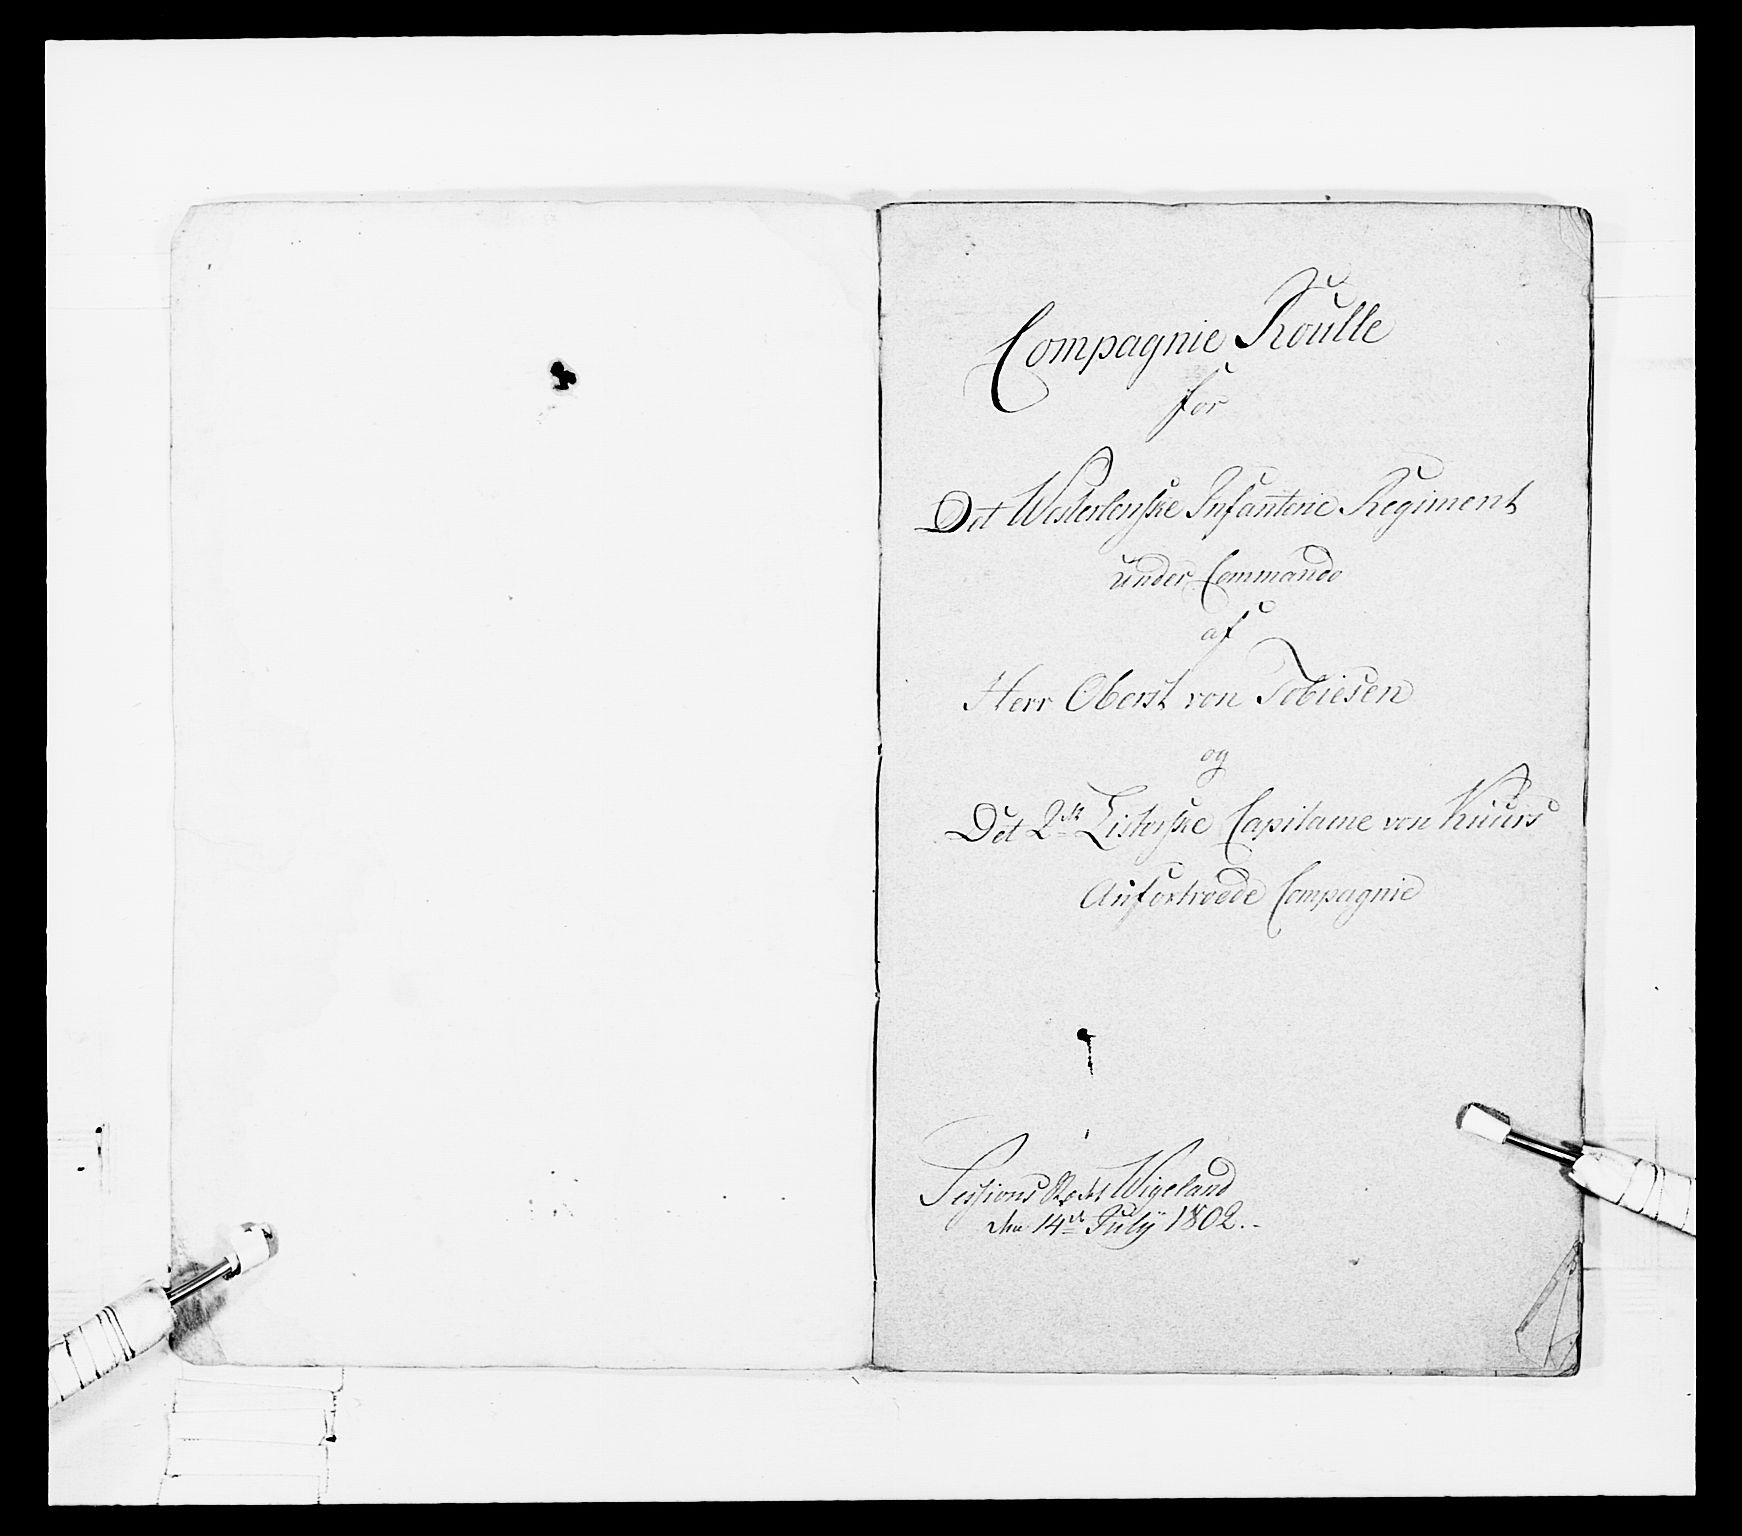 Compagnie Roulle
for
Det Westerlenske Infanterie Regiment
under Commando
af
Herr Oberst von Tobiesen
og
Det 2de Listerske Capitaine von Kuurs
Anfortroede Compagnie
Sessions Wigeland
den 14de July 1802.